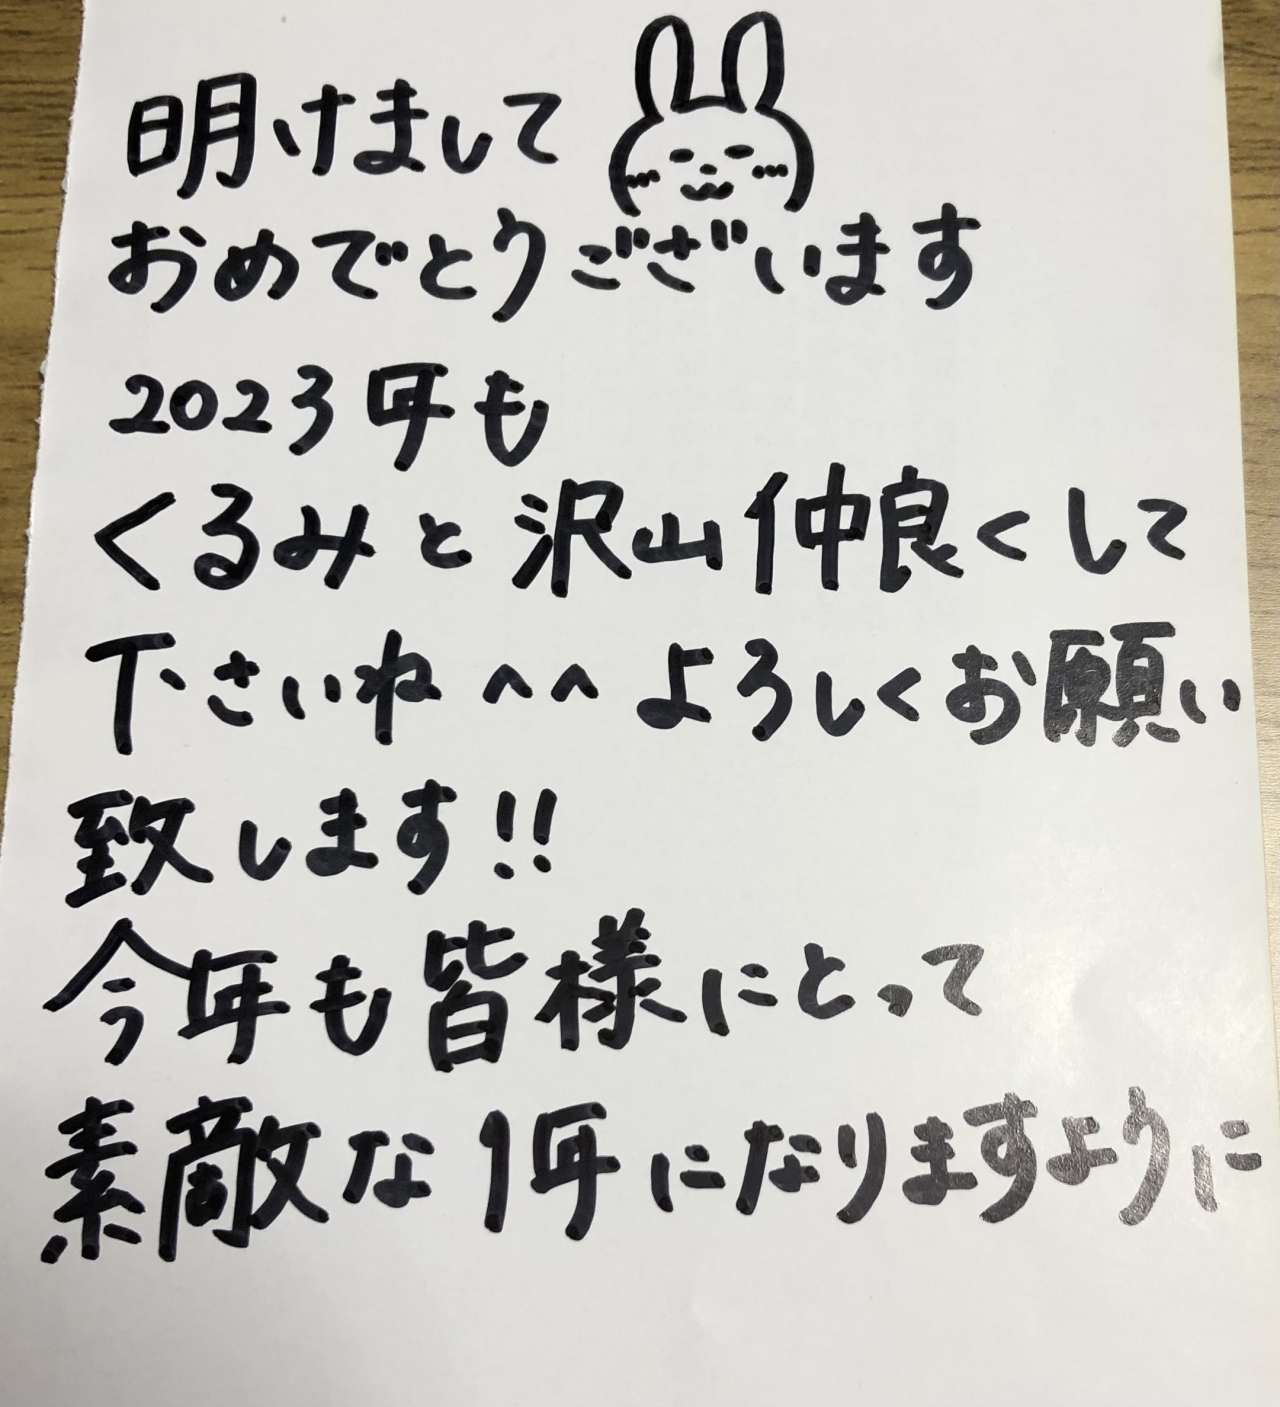 明けまして
おめでとうございます
2023年も
くるみと沢山仲良くして
下さいね^^よろしくお願い
致します!!
今年も皆様にとって
素敵な1年になりますように